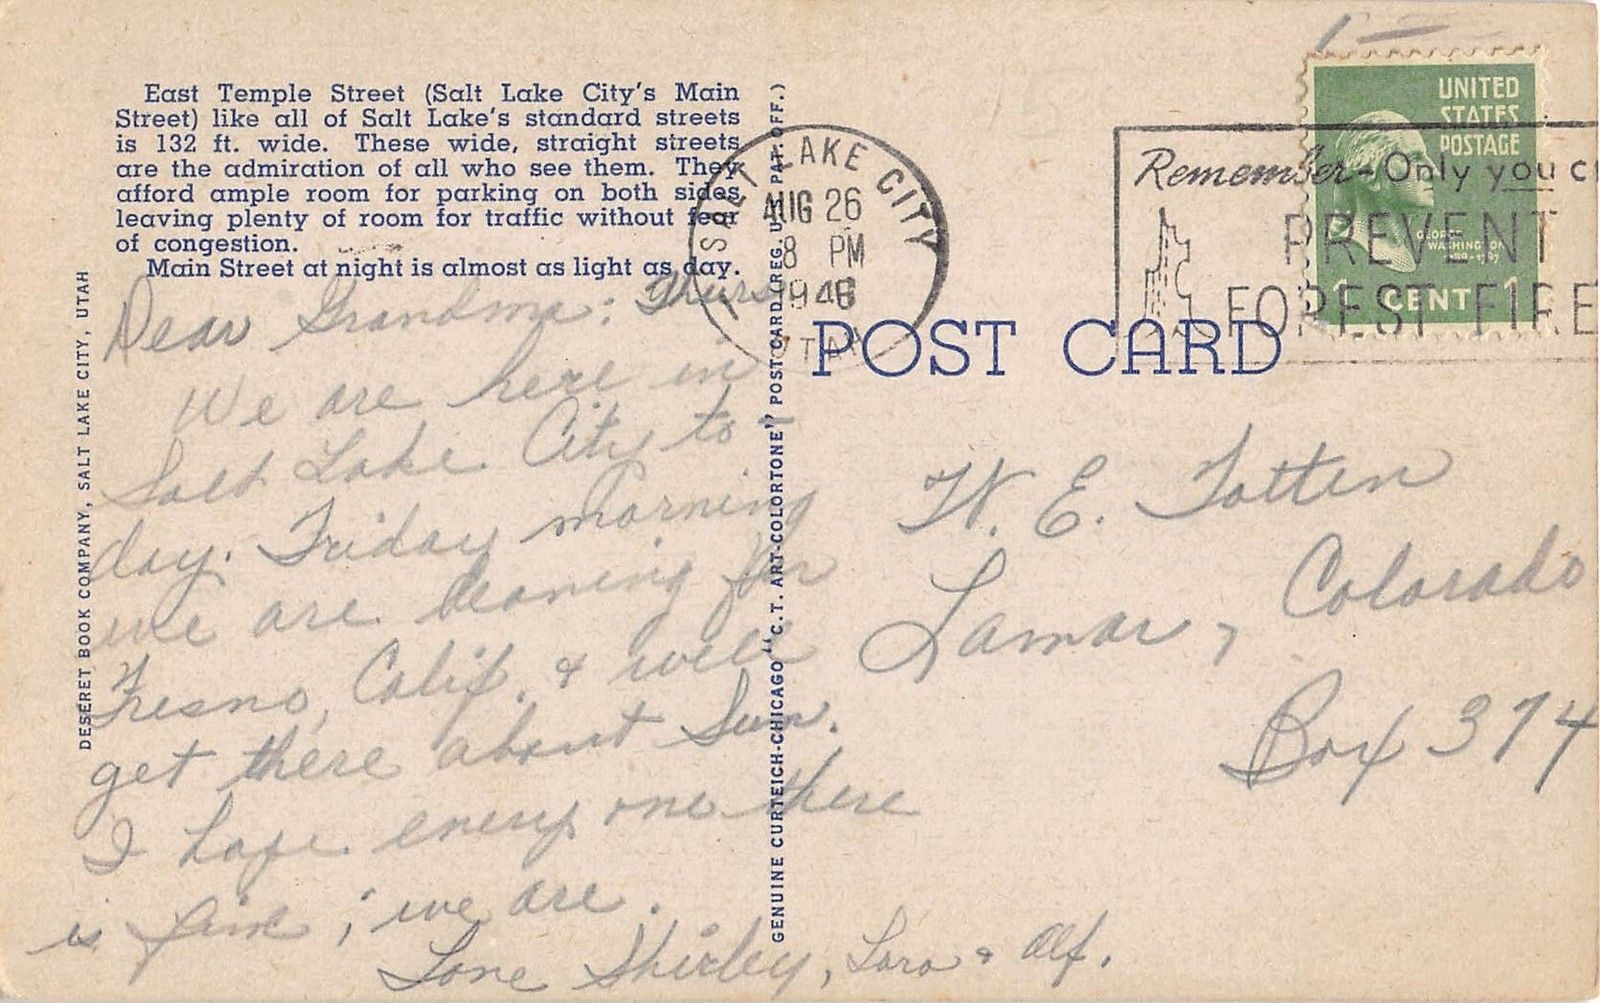 East Temple Street (Salt Lake City's Main
Street) like all of Salt Lake's standard streets
is 132 ft. wide. These wide, straight streets
are the admiration of all who see them. They
afford ample room for parking on both sides
leaving plenty of room for traffic without fear
of congestion.
Main Street at night is almost as light as day.
DESERET BOOK COMPANY, SALT LAKE CITY, UTAH
Dear Grandma: Thurs
We are here in
Salt Lake City to-
day. Friday morning
we are leaving for
Fresno, Calif. & will
get there about Sun.
I hope every one there
is fine; we are.
Love Shirley, Lara & Alf.
GENUINE CURTEICH-CHICAGO "C.T. ART-COLORTONE" POST CARD (REG. U.S. PAT. OFF.)
SALT LAKE CITY
AUG 26
8 PM
UTAH
Remember-Only you c
PREVENT
FOREST FIRE
UNITED
STATES
POSTAGE
GEORGE
WASHINGTON
1 CENT 1
POST CARD
W. E. Totten
Lamar, Colorado
Box 374